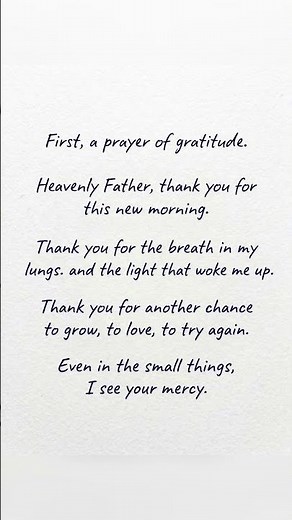 First, a prayer of gratitude.
Heavenly Father, thank you for
this new morning.
Thank you for the breath in my
lungs. and the light that woke me up.
Thank you for another chance
to grow, to love, to try again.
Even in the small things,
I see your mercy.